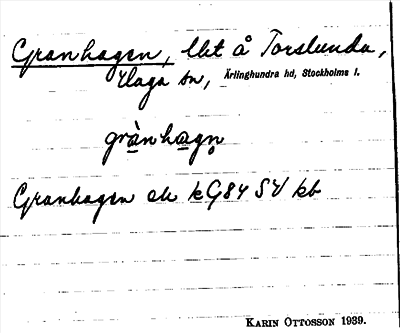 Granhagen, lht å Torslunda,
Haga sn, Ärlinghundra hd, Stockholms l.
grànhagn̥
Granhagen ek kG84 SV kb
KARIN OTTOSSON 1939.